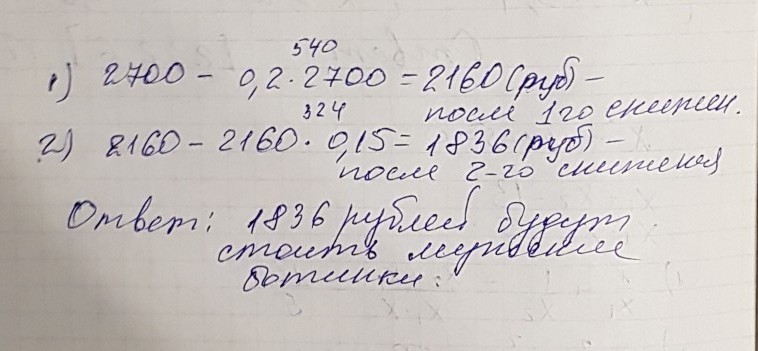 540
1) 2700 - 0,2·2700 = 2160 (руб) -
после 1го снижен.
324
2) 2160 - 2160 · 0,15 = 1836 (руб) -
после 2-го снижения
Ответ: 1836 рублей будут
стоить мужские
ботинки.